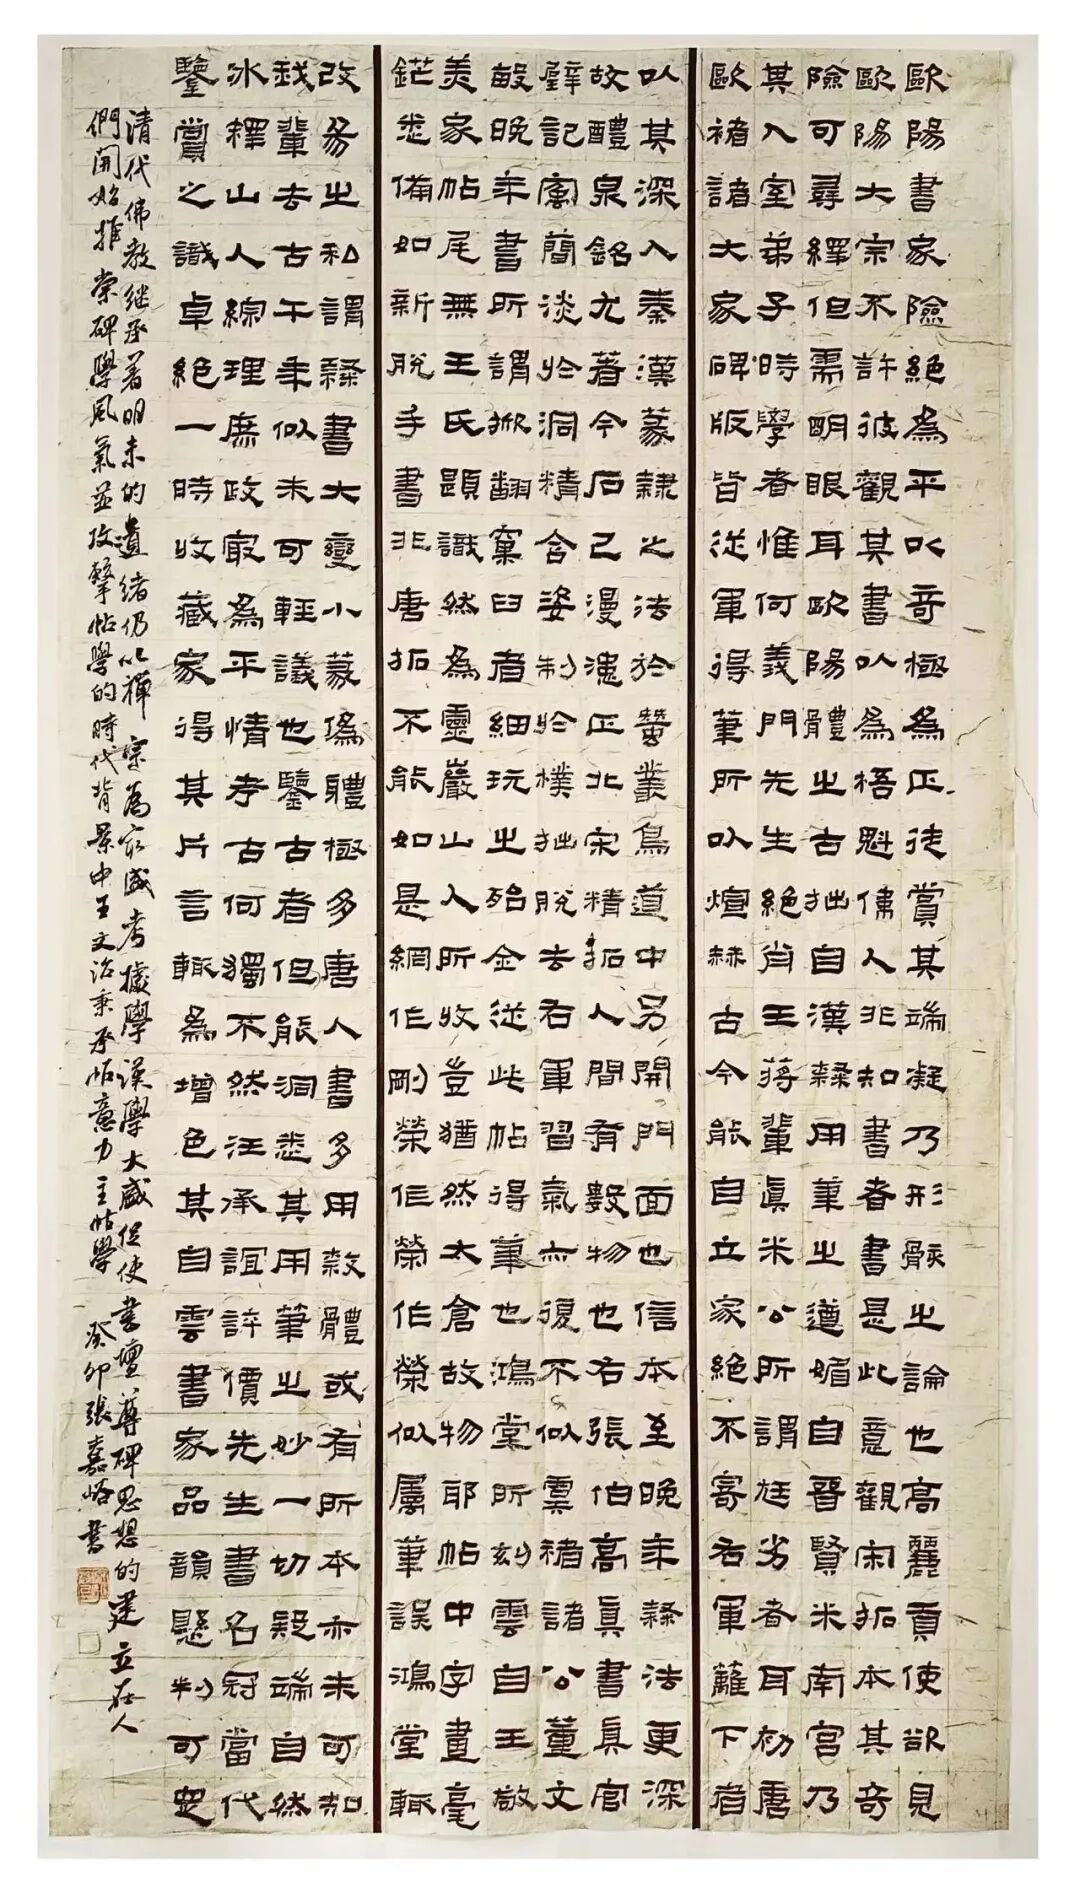 歐陽書家險絕為平以奇極為正徒賞其端凝乃形骸之論也高麗貢使欲見
歐陽大宗不許彼觀其書以為梧魁人非知書者書是此意觀宋拓本其奇
險可尋繹但需明眼耳歐陽體之古拙自漢隸用筆之遒媚自晉賢米南宮乃
其入室弟子時學者惟何義門先生絕肖王蔣輩真米公所謂尪劣者耳初唐
歐褚諸大家碑版皆從軍得筆所以煊赫古今能自立家絕不寄右軍籬下者
以其深入秦漢篆隸之法於蠶叢鳥道中另開門面也信本至晚年隸法更深
故醴泉銘尤著今石已漫漶正北宋精拓人間有數物也右張伯高真書真官
壁記寓簡淡於洞精含姿制於樸拙脫去右軍習氣亦復不似虞褚諸公董文
敏晚年書所謂掀翻窠臼者細玩之殆金從此帖得筆也鴻堂所刻雲自王敬
美家帖尾無王氏題識然為靈巖山人所收豈猶然太倉故物耶帖中字畫毫
鋩悉備如新脫手書非唐拓不能如是網作剛榮作榮作榮似屬筆誤鴻堂輒
改易之私謂隸書大變小篆偽體極多唐人書多用殺體或有所本亦未可知
我輩去古千年似未可輕議也鑒古者但能洞悉其用筆之妙一切疑端自然
冰釋山人綜理庶政最為平情考古何獨不然汪承誼評價先生書名冠當代
鑒賞之識卓絕一時收藏家得其片言輒為增色其自雲書家品韻懸判可思
清代佛教继承着明末的遺绪仍以禪宗為最盛考據學漢學大盛促使書壇尊碑思想的建立在人
們開始推崇碑學風氣並攻擊帖學的時代背景中王文治秉承帖意力主帖學 癸卯張嘉峪書